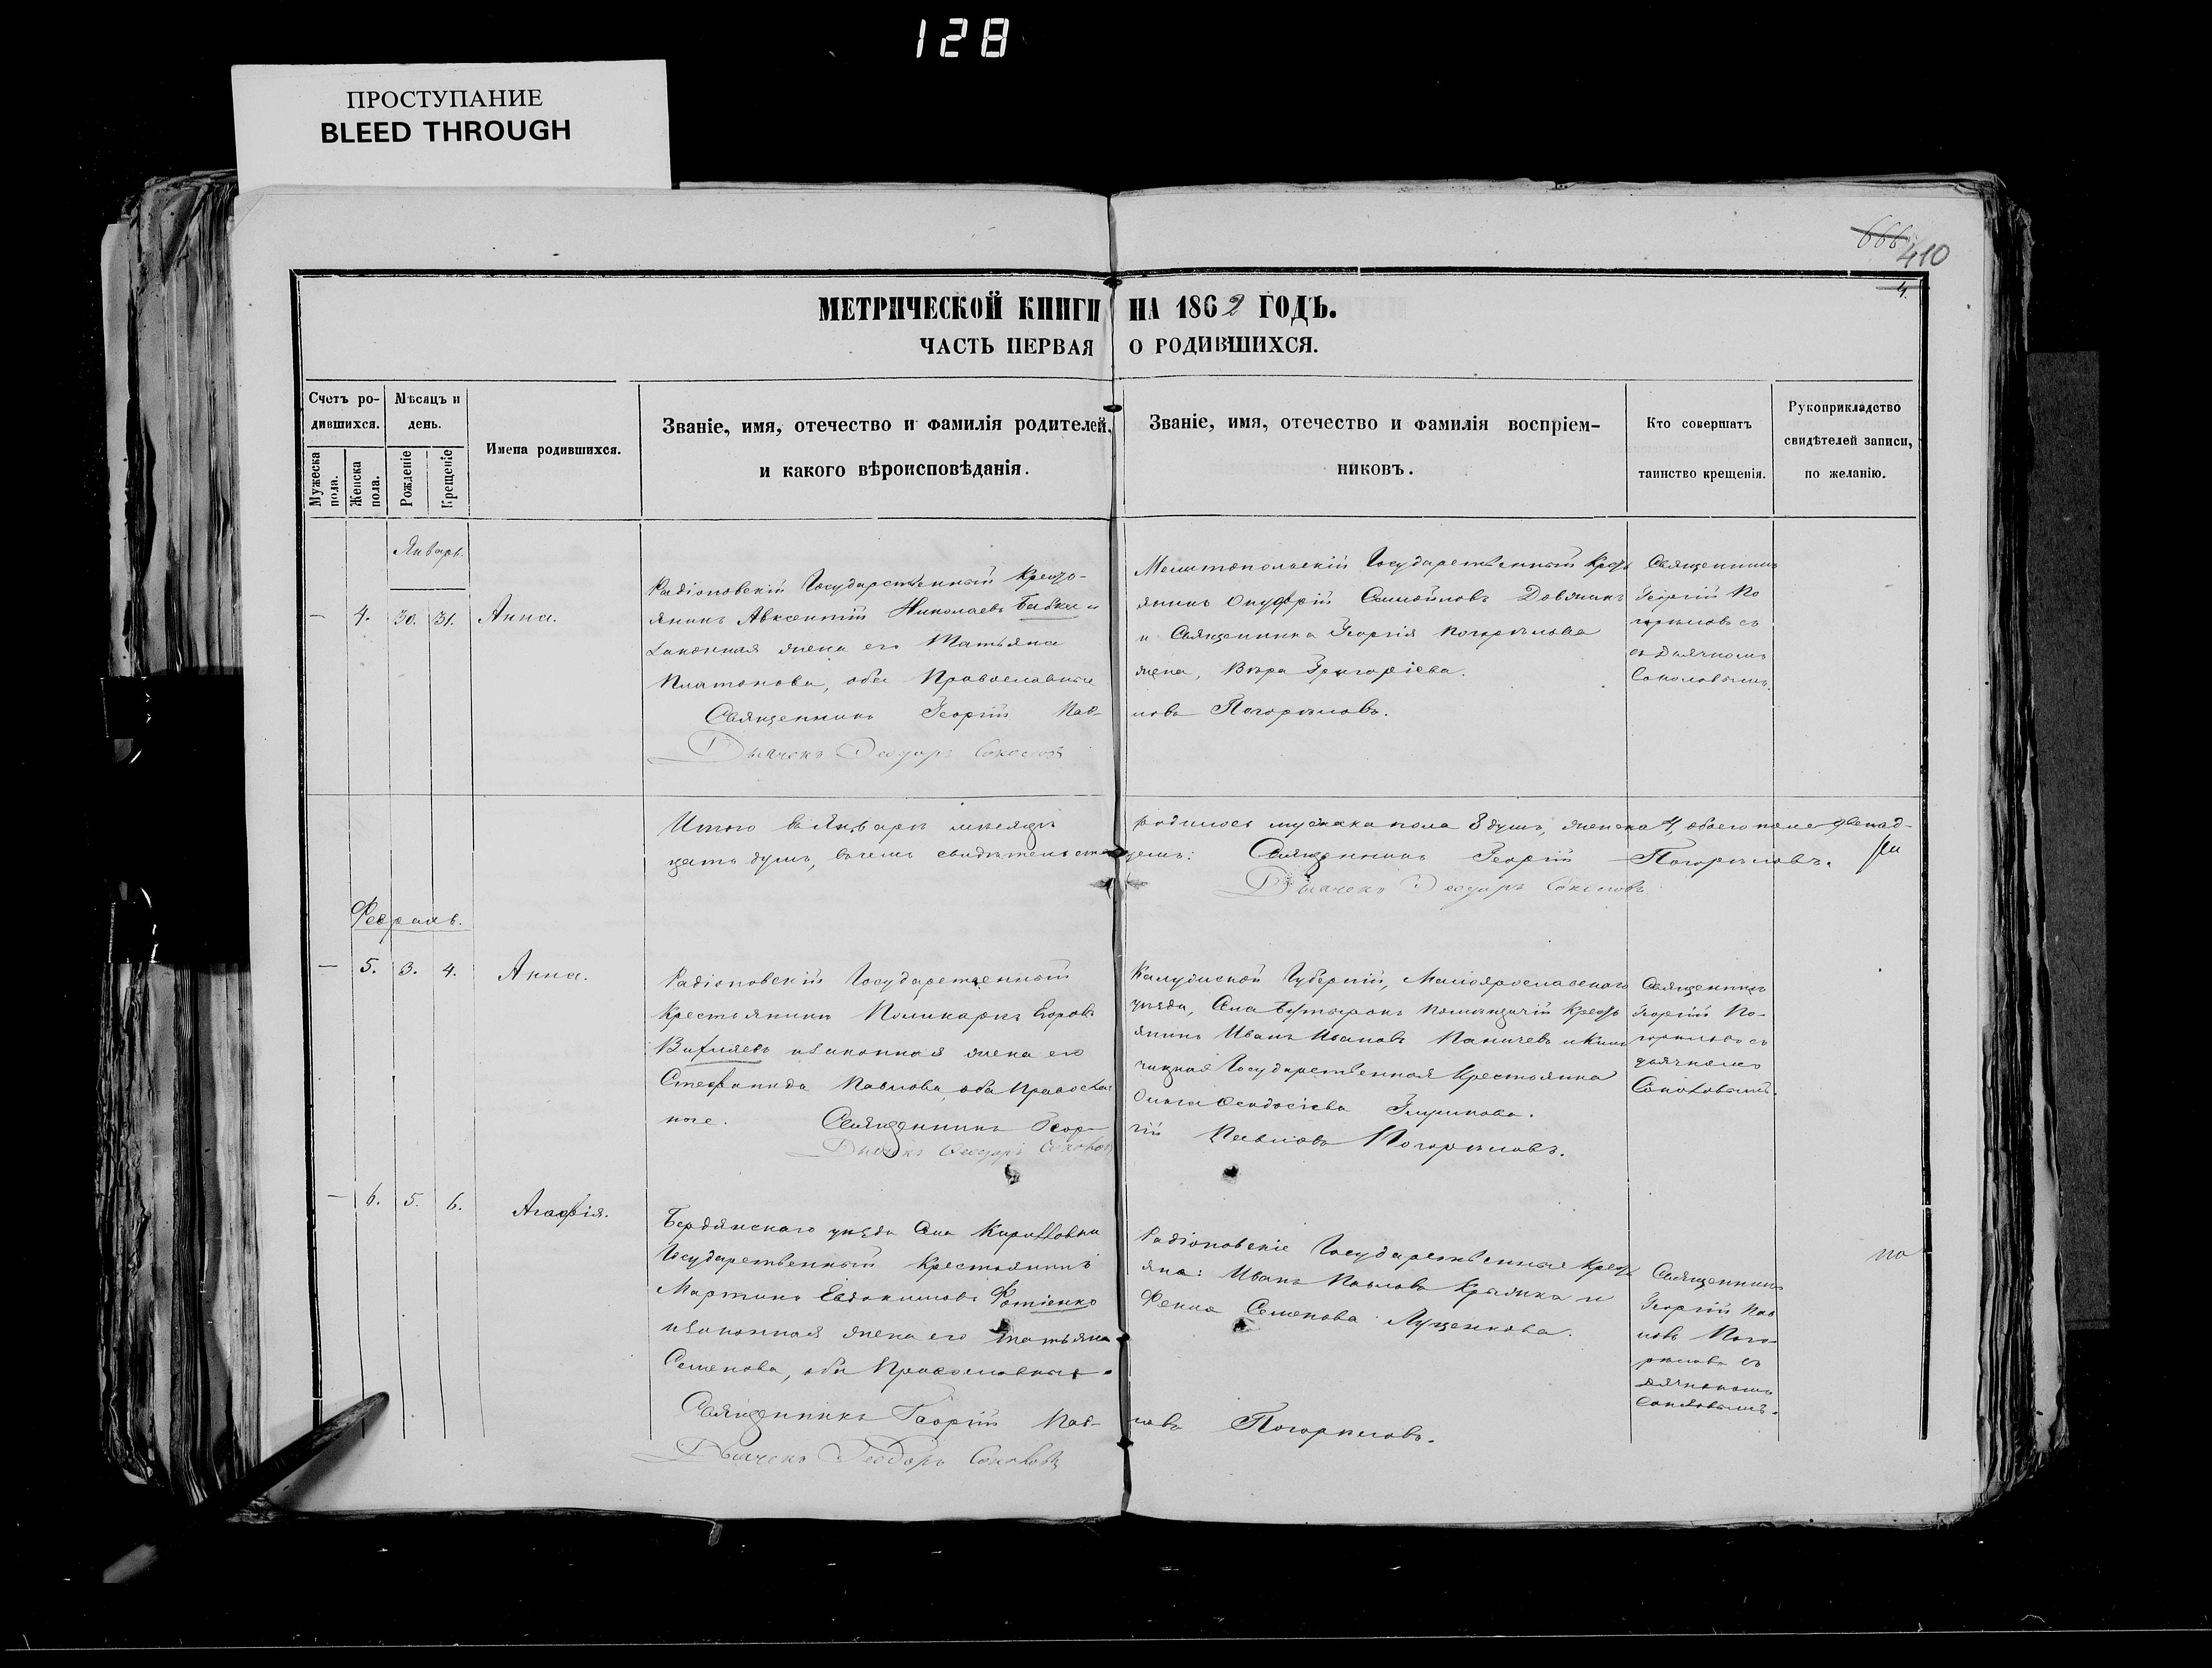 128
ПРОСТУПАНИЕ
BLEED THROUGH
666
410
4.
МЕТРИЧЕСКОЙ КНИГИ НА 1862 ГОДЪ.
ЧАСТЬ ПЕРВАЯ О РОДИВШИХСЯ.
Счетъ ро-
дившихся.
Мѣсяцъ и
день.
Мужеска
пола.
Женска
пола.
Рожденіе
Крещеніе
Имена родившихся.
Званіе, имя, отечество и фамилія родителей,
и какого вѣроисповѣданія.
Званіе, имя, отечество и фамилія воспріем-
никовъ.
Кто совершатъ
таинство крещенія.
Рукоприкладство
свидѣтелей записи,
по желанію.
Январь.
— 4. 30. 31. Анна.
Радіоновскій Государственный Кресть-
янинъ Авксентій Николаевъ Бабка и
законная жена его Татьяна
Платонова, оба Православные
Священникъ Георгій Пав-
Дьячекъ Ѳеодоръ Соколовъ
Мелитопольскій Государственный Крест
янинъ Онуфрій Самойловъ
и Священника Георгія Погорѣлова
жена, Вѣра Григоріева.
ловъ Погорѣловъ.
Священникъ
Георгій По
горѣловъ съ
съ Дьячкомъ
Соколовымъ.
Итого въ Январѣ мѣсяцѣ родилось мужска пола 8 душъ, женска 4, обоего пола двенад-
цать душъ, въ чемъ свидѣтельствуемъ: Священникъ Георгій Погорѣловъ.
Дьячекъ Ѳеодоръ Соколовъ
Февраль.
— 5. 3. 4. Анна.
Радіоновскій Государственный
Крестьянинъ Поликарпъ Егоровъ
и законная жена его
Стефанида Павлова, оба Правосла
ные. Священникъ Геор-
Дьячекъ Ѳеодоръ Соколовъ
Калужской Губерніи, Малоярославскаго
уѣзда, Села Помѣщичій Крест
янинъ Иванъ Ивановъ Паничевъ и
Государственная Крестьянка
Ольга Ѳеодосіева
гій Павловъ Погорѣловъ.
Священникъ
Георгій По-
горѣловъ съ
дьячкомъ
Соколовымъ.
— 6. 5. 6. Агафія.
Бердянскаго уѣзда Села Кирилловки
Государственный Крестьянинъ
Мартинъ Евдокимовъ Фотіенко
и законная жена его Татьяна
Семенова, оба Православные.
Священникъ Георгій Пав-
Дьячекъ Ѳеодоръ Соколовъ
Радіоновскіе Государственные Крест
яне: Иванъ Павловъ и
Семенова Луценкова.
ловъ Погорѣловъ.
Священникъ
Георгій Пав
ловъ Пого-
рѣловъ съ
дьячкомъ
Соколовымъ.
по